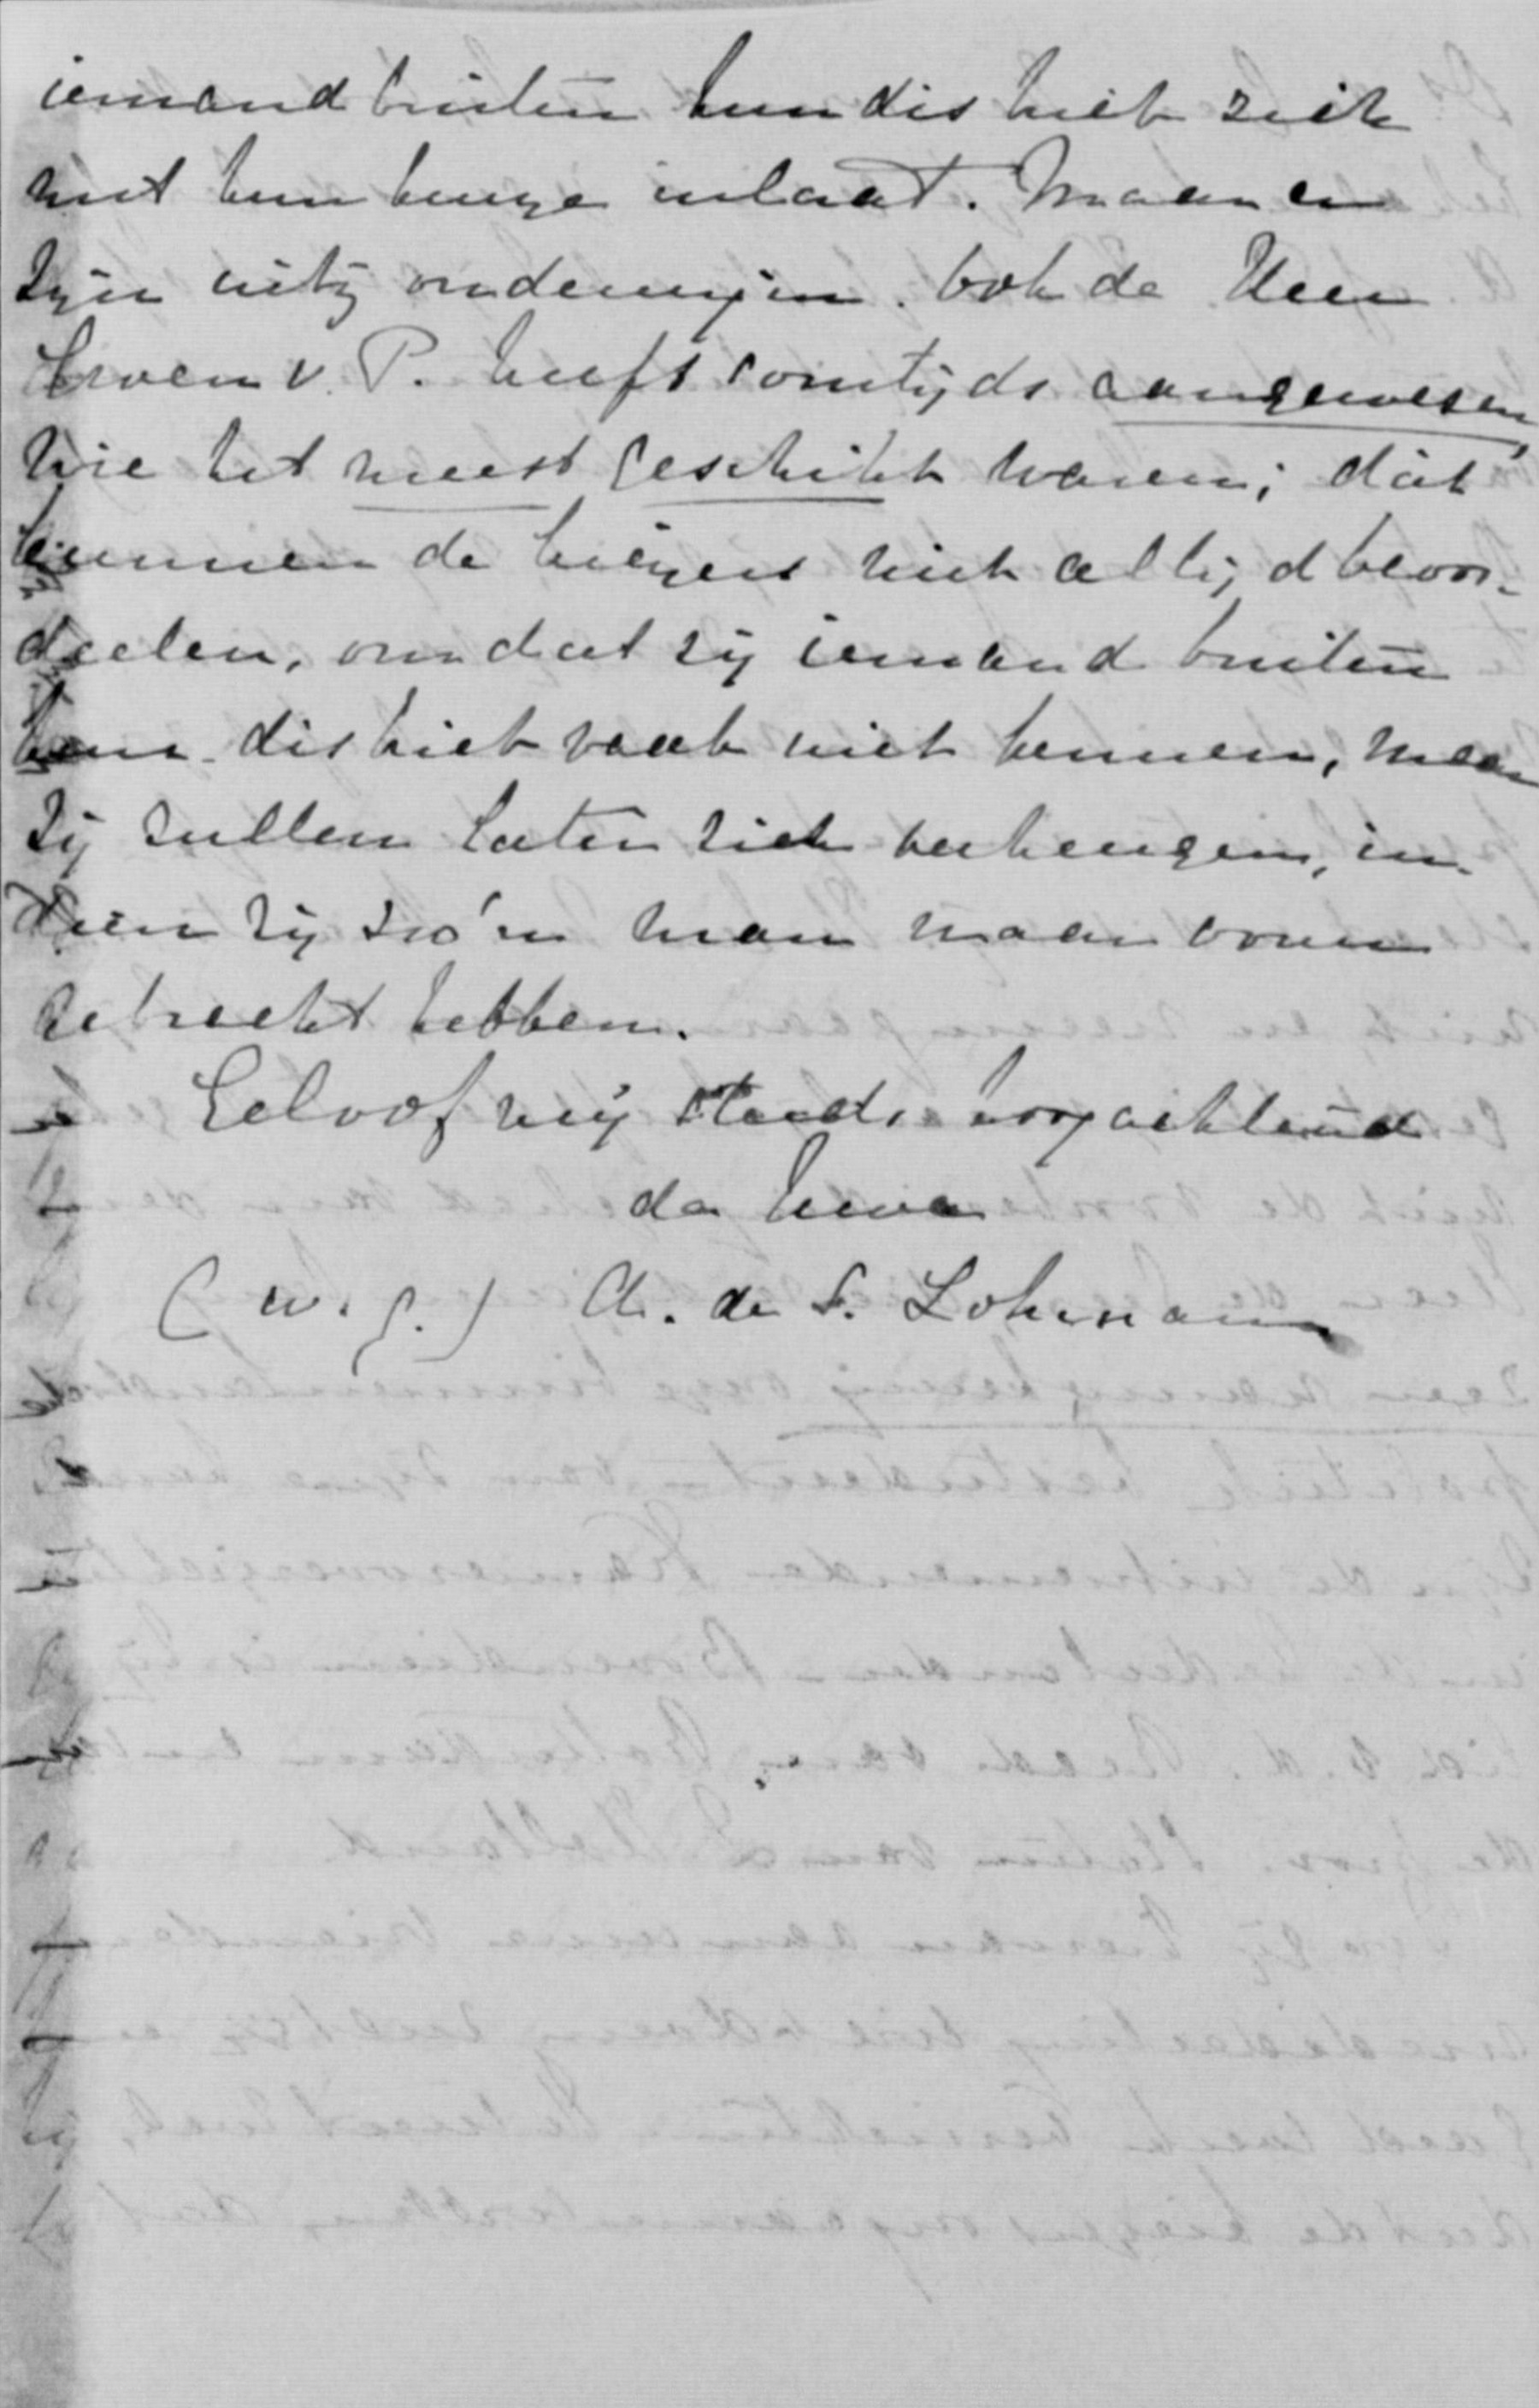 iemand buiten hun district zich
met hun keuze inlaat. Maar er
zijn uitz onderingen. Ook de Heer
Groen v. P. heeft somtijds aangewezen,
wie het meest geschikt waren; dat
kunnen de kiezers niet altijd beoor-
deelen, omdat zij iemand buiten
hun district vaak niet kennen, maar
zij zullen later zich verheugen, in-
dien zij zoo'n man maar boven
gebracht hebben.
Geloof mij steeds hoogachtend
de Uwe
(w. g.) A. de S. Lohman